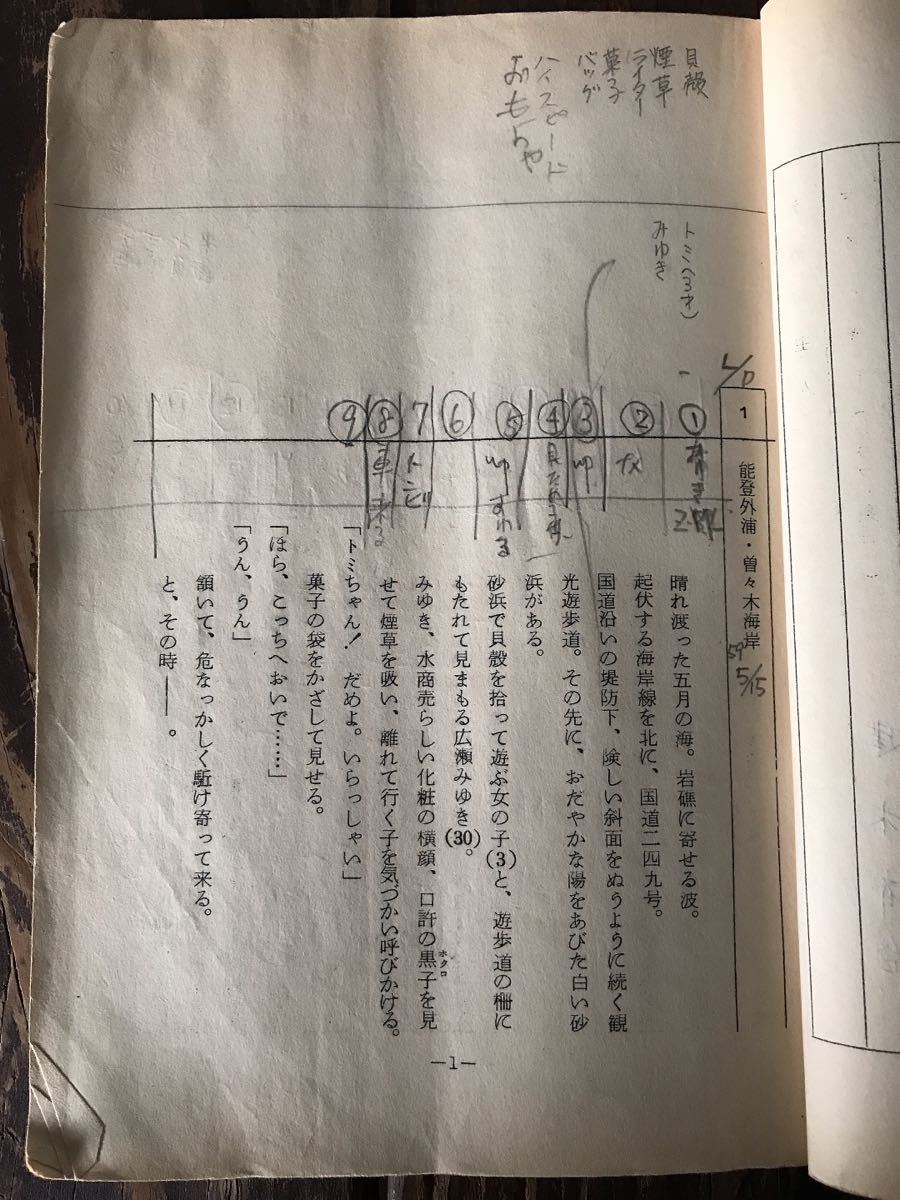 貝殻
煙草
ライター
菓子
バッグ
ハイスピード
おもちゃ
トミ(3才)
みゆき
L/D
1
能登外浦・曽々木海岸
59 5/15
①
②
③
④
⑤ ゆ すわる
⑥
7 トビ
⑧ 車 来る
⑨
晴れ渡った五月の海。岩礁に寄せる波。
起伏する海岸線を北に、国道二四九号。
国道沿いの堤防下、険しい斜面をぬうように続く観
光遊歩道。その先に、おだやかな陽をあびた白い砂
浜がある。
砂浜で貝殻を拾って遊ぶ女の子(3)と、遊歩道の柵に
もたれて見まもる広瀬みゆき(30)。
みゆき、水商売らしい化粧の横顔、口許の黒子を見
ホクロ
せて煙草を吸い、離れて行く子を気づかい呼びかける。
「トミちゃん! だめよ。いらっしゃい」
菓子の袋をかざして見せる。
「ほら、こっちへおいで……」
「うん、うん」
頷いて、危なっかしく駈け寄って来る。
と、その時――。
—1—